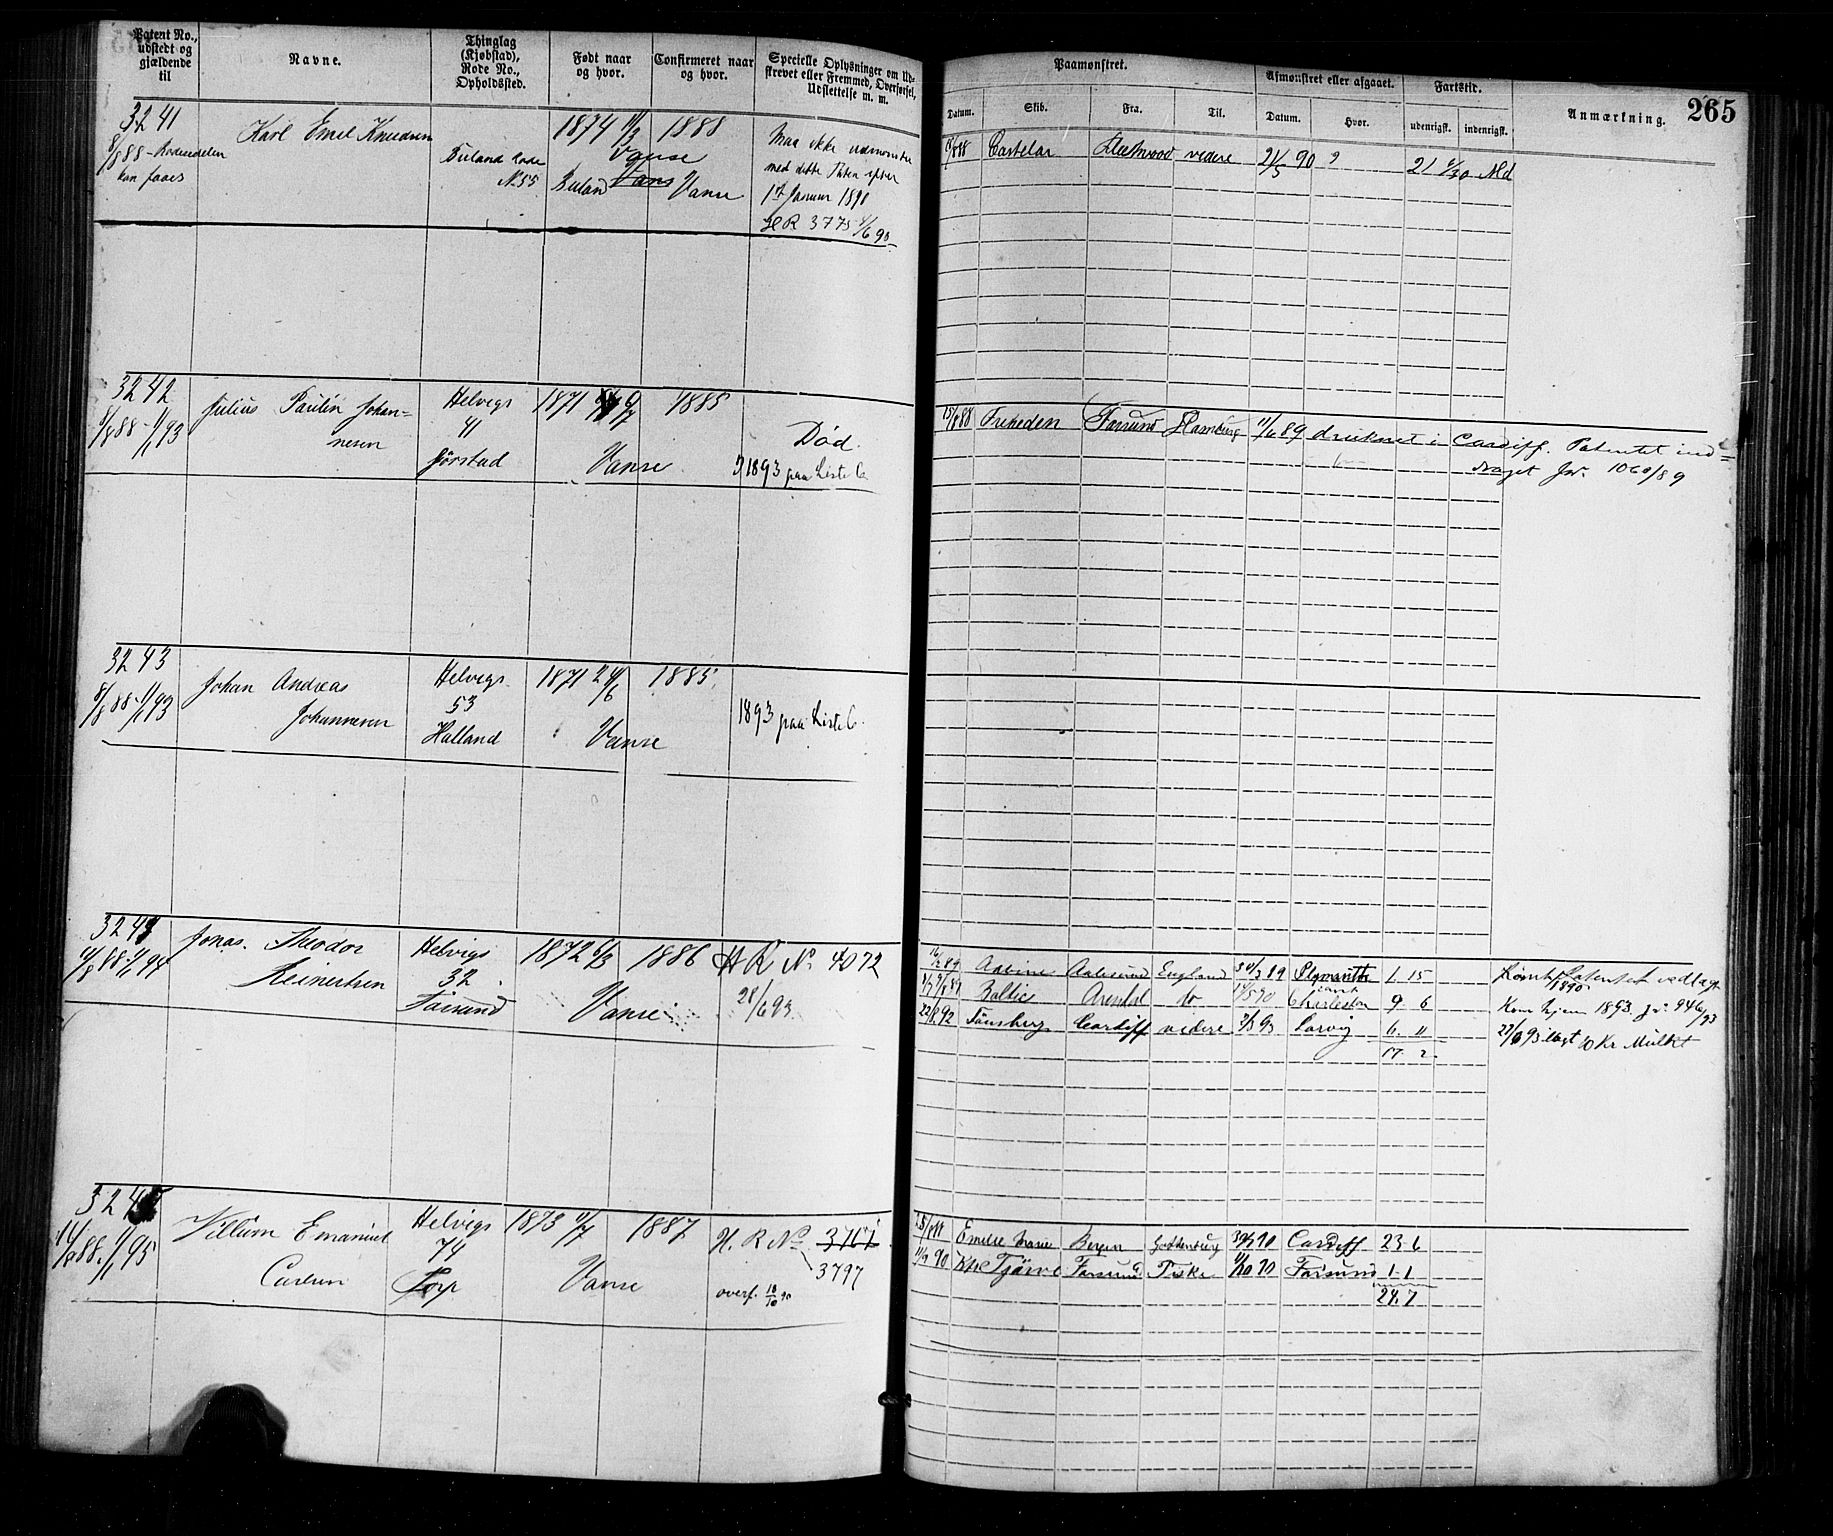 Patent No., udstedt og gjældende til
Navne.
Thinglag (Kjøbstad), Rode No., Opholdssted.
Født naar og hvor.
Confirmeret naar og hvor.
Specielle Oplysninger om Udskrevet eller Fremmed, Overførsel, Udslettelse m. m.
Paamønstret.
Datum.
Skib.
Fra.
Til.
Afmønstret eller afgaaet.
Datum.
Hvor.
Fartstid.
udenrigsk.
indenrigsk.
Anmærkning.
265
3241
8/8 88 - Rodesedelen
kan faaes
Karl Emil Knudsen
N. 55
1874 11/3
Vanse
1888
Vanse
Maa ikke udmønstres
med dette Paten efter
1st Januar 1890
HR 3775 4/6 90
Castelar
Fleetwood
videre
21/5 90
21 6/30 Md
3242
8/8 88 - 1/1 93
Julius Paulin Johan=
nesen
Helvigs
41
Jørstad
1871
1885
Vanse
Død
1893 paa Liste C.
15/8 88
Friheden
Farsund
Hamburg
11/6 89 druknet i Cardiff. Patentet ind=
draget Jr. 1060/89
3243
8/8 88 - 1/1 93
Johan Andreas
Johannesen
Helvigs
53
Halland
1871 24/6
1885
Vanse
1893 paa Liste C.
3244
11/8 88 - 1/1 94
Jonas Theodor
Reinertsen
Helvigs
32
Farsund
1872 6/3
1886
Vanse
HR No. 4072
28/6 93
Aalesund
England
30/3 89
Plymouth
1. 15
Baltic
Arendal
do
Charleston
9. 6
22/8 92
Tønsberg
Cardiff
videre
Larvig
6. 11
17. 2
1890
Kom hjem 1893. Jr. 946/93
27/6 93 ilagt 10 Kr Mulkt
3245
11/8 88. 1/1 95
Villum Emanuel
Carlsen
Helvigs
74
Torp
1873 11/7
1887
Vanse
H. R No. 3767
3797
overf. 10/10 90
Emelie Marie
Bergen
Gothenburg
Cardiff
23. 6
Farsund
Fiske
Farsund
1. 1
24. 7